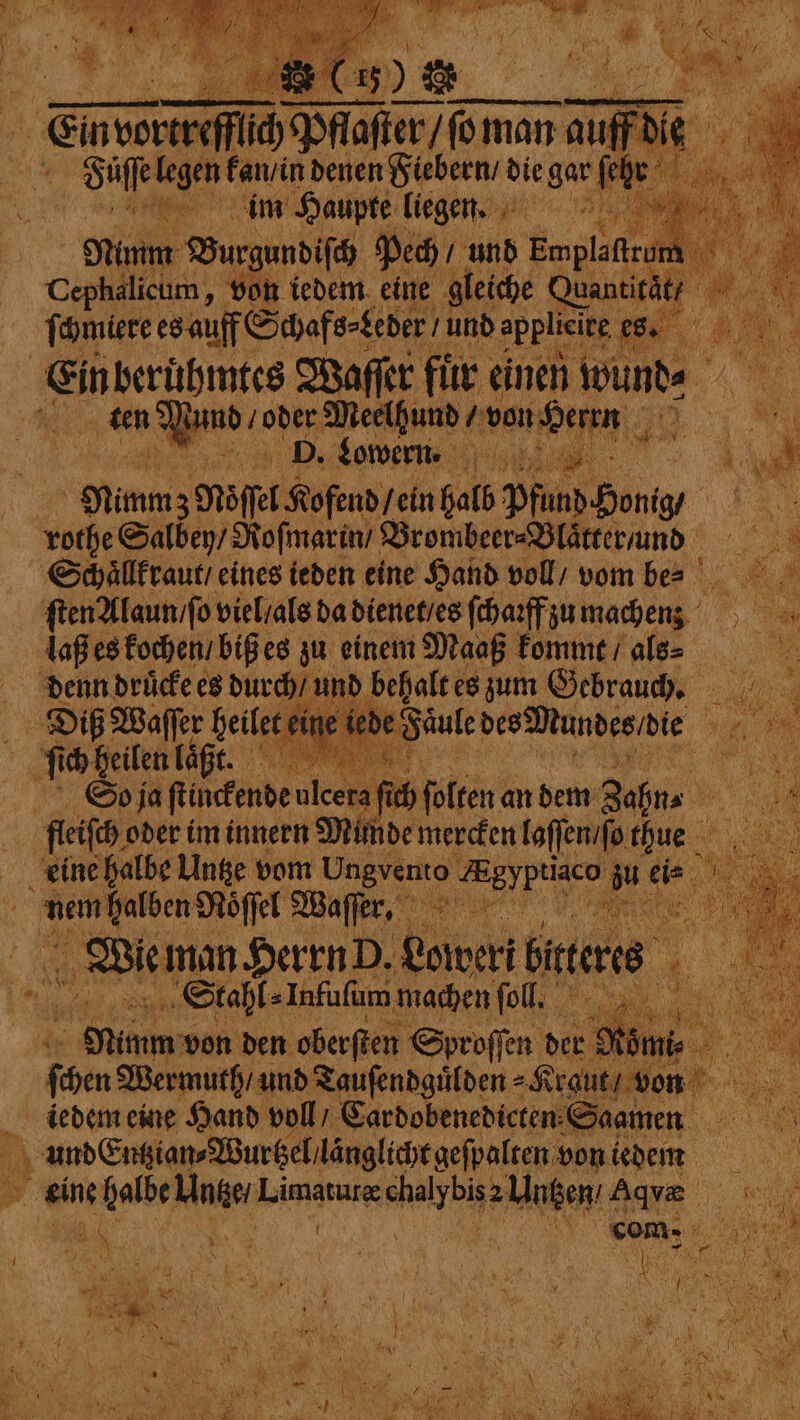 (15)
Ein vortrefflich Pflaſter / ſo man auff die
Fuͤſſe legen kan / in denen Fiebern / die gar ſehr
im Haupte liegen.
Nimm Burgundiſch Pech / und Emplaſtrum
Cephalicum, von iedem eine gleiche Quantitaͤt /
ſchmiere es auff Schafs-Leder / und applicire es.
Ein beruͤhmtes Waſſer fuͤr einen wund-
ten Mund / oder Meelhund / von Herrn
D. Lowern.
Nimm 3 Noͤſſel Kofend / ein halb Pfund Honig /
rothe Salbey / Roſmarin / Brombeer-Blaͤtter / und
Schaͤllkraut / eines ieden eine Hand voll / vom be-
ſten Alaun / ſo viel / als da dienet / es ſcharff zu machen;
laß es kochen / biß es zu einem Maaß kommt / als-
denn druͤcke es durch / und behalt es zum Gebrauch.
Diß Waſſer heilet eine iede Faͤule des Mundes / die
ſich heilen laͤßt.
So ja ſtinckende ulcera ſich ſolten an dem Zahn-
fleiſch oder im innern Munde mercken laſſen / ſo thue
eine halbe Untze vom Ungvento Ægyptiaco zu ei-
nem halben Noͤſſel Waſſer,
Wie man Herrn D. Loweri bitteres
Stahl-Infuſum machen ſoll.
Nimm von den oberſten Sproſſen der Roͤmi-
ſchen Wermuth / und Tauſendguͤlden-Kraut / von
iedem eine Hand voll / Cardobenedicten-Saamen
und Entzian-Wurtzel / laͤnglicht geſpalten von iedem
eine halbe Untze / Limaturæ chalybis 2 Untzen / Aqvæ
com-